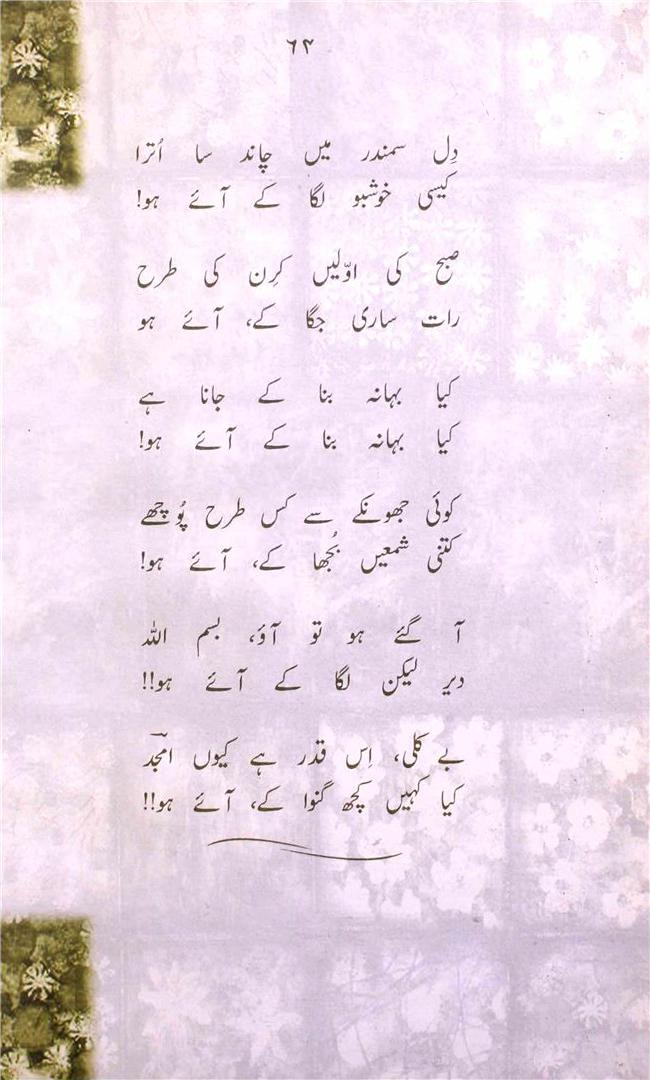 ۶۴
دِل سمندر میں چاند سا اُترا
کیسی خوشبو لگا کے آئے ہو!
صبح کی اوّلیں کرِن کی طرح
رات ساری جگا کے، آئے ہو
کیا بہانہ بنا کے جانا ہے
کیا بہانہ بنا کے آئے ہو!
کوئی جھونکے سے کس طرح پُوچھے
کتنی شمعیں بُجھا کے، آئے ہو!
آ گئے ہو تو آؤ، بسم اللہ
دیر لیکن لگا کے آئے ہو!!
بے کلی، اِس قدر ہے کیوں امجدؔ
کیا کہیں کچھ گنوا کے، آئے ہو!!